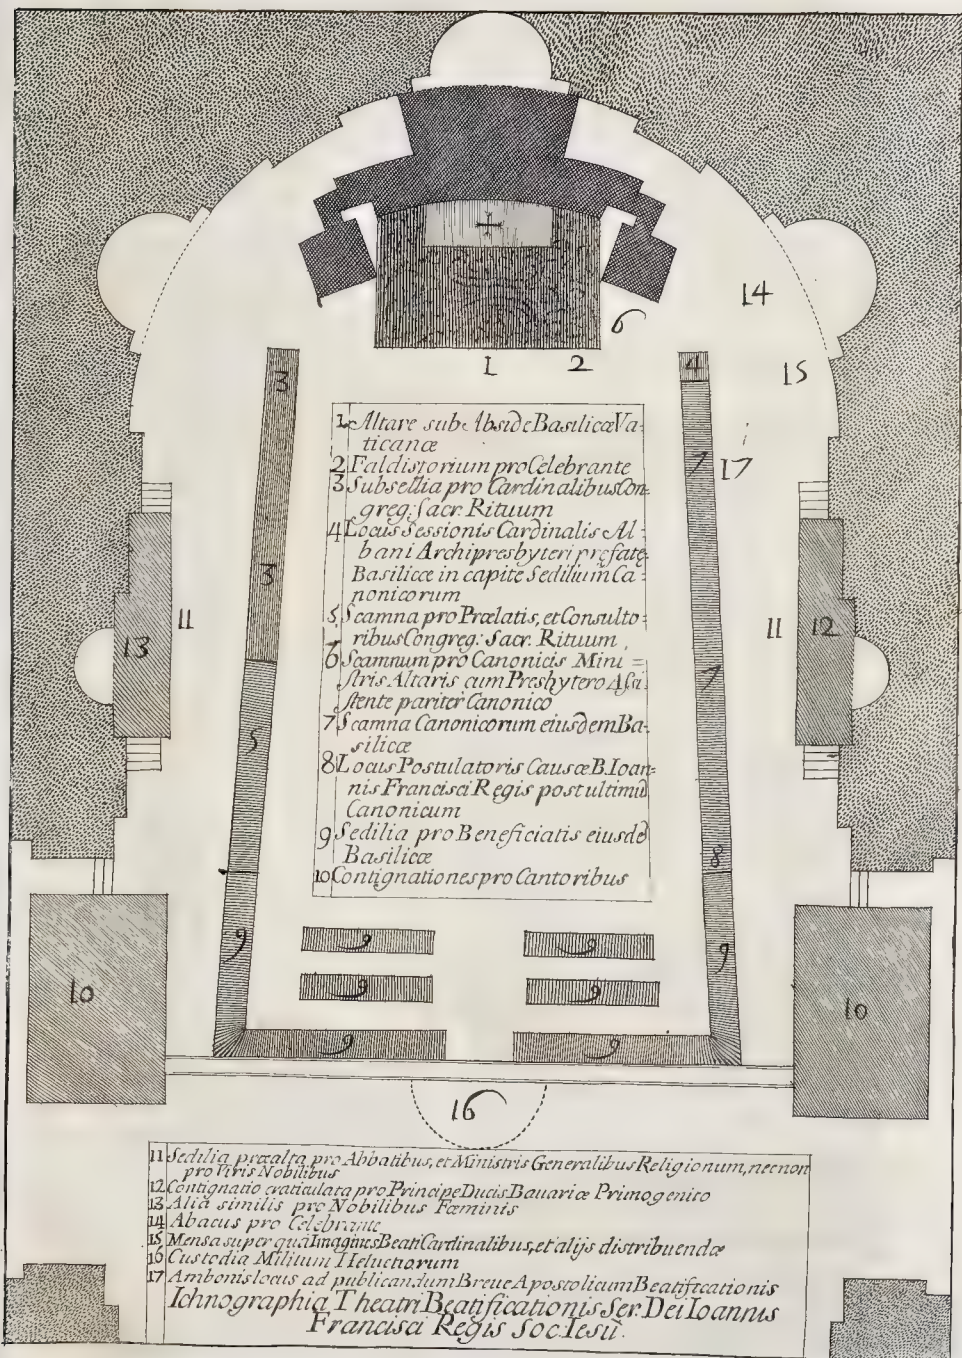 14
6
1 2
3
4
15
1 Altare sub Abside Basilicæ Va-
ticanæ
2 Faldistorium pro Celebrante
3 Subsellia pro Cardinalibus Con-
greg: Sacr. Rituum
4 Locus Sessionis Cardinalis Al-
bani Archipresbyteri præfatę
Basilicæ in capite Sedilium Ca-
nonicorum
5 Scamna pro Prælatis, et Consulto-
ribus Congreg: Sacr. Rituum
6 Scamnum pro Canonicis Mini=
stris Altaris cum Presbytero Assi-
stente pariter Canonico
7 Scamna Canonicorum eiusdem Ba-
silicæ
8 Locus Postulatoris Causæ B. Ioan-
nis Francisci Regis post ultimũ
Canonicum
9 Sedilia pro Beneficiatis eiusdẽ
Basilicæ
10 Contignationes pro Cantoribus
7
17
3
11
13
11
12
7
5
8
9
9
10
10
9 9
9 9
9 9
16
11 Sedilia præalta pro Abbatibus, et Ministris Generalibus Religionum, necnon
pro Viris Nobilibus
12 Contignatio craticulata pro Principe Ducis Bavariæ Primogenito
13 Alia similis pro Nobilibus Fœminis
14 Abacus pro Celebrante
15 Mensa super quã Imagines Beati Cardinalibus, et alijs distribuendæ
16 Custodia Militum Heluetiorum
17 Ambonis locus ad publicandum Breue Apostolicum Beatificationis
Ichnographia Theatri Beatificationis Ser. Dei Ioannis
Francisci Regis Soc. Iesù.